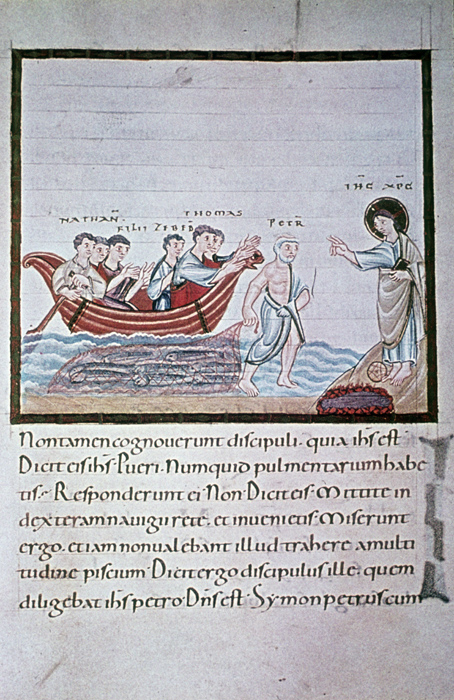 IHC XPC
THOMAS
NATHAN
FILII ZEBED
PETR
Nontamen cognoverunt discipuli· quia ihs est
Dicit eis ihs· Pueri· Numquid pulmentarium habe
tis· Responderunt ei· Non· Dicit eis· Mittite in
dexteram navigii rete· et invenietis· Miserunt
ergo· et iam non valebant illud trahere a multi
tudine piscium· Dicit ergo discipulus ille· quem
diligebat ihs petro· Dns est· Symon petrus cum